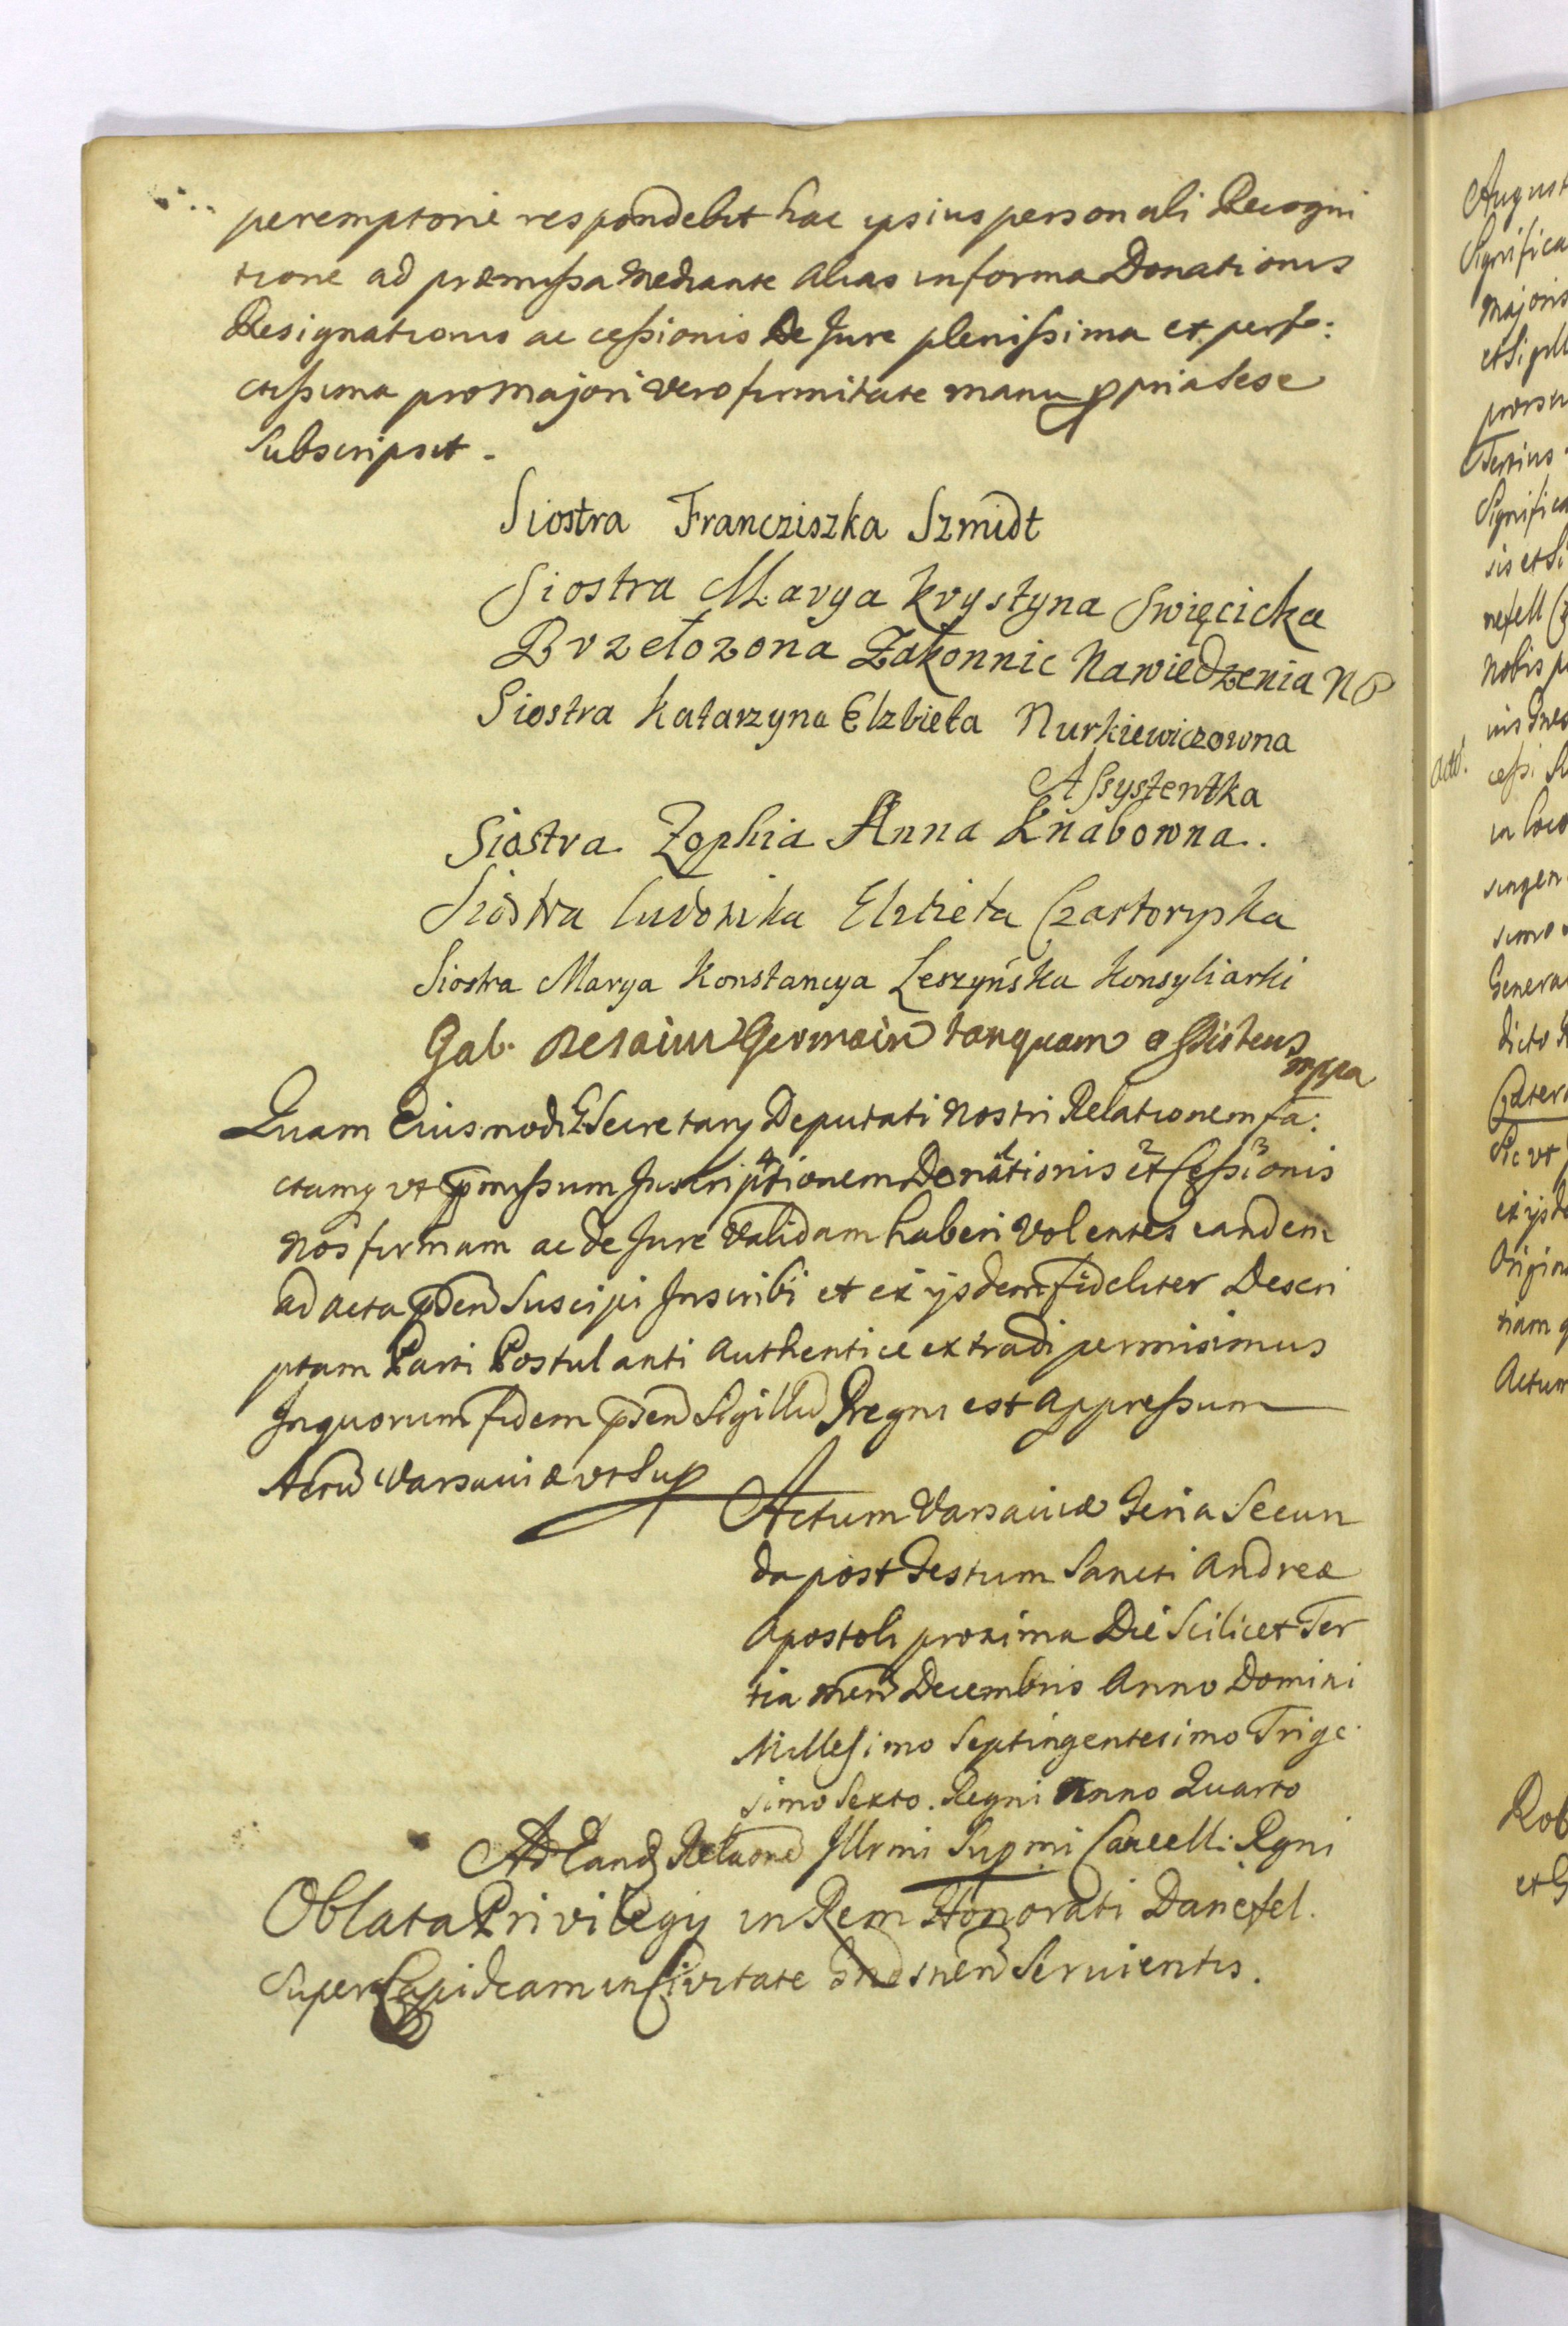 peremptorie respondebit hac ipsius personali Recogni
tione ad præmissa mediante alias in forma Donationis
Resignationis ac cessionis de Jure plenissima et perfe:
ctissima pro majori vero firmitate manu ppria sese
Subscripsit.
Siostra Francziszka Szmidt
Siostra Marya Krystyna Swięcicka
Przełozona Zakonnic Nawiedzenia NP
Siostra Katarzyna Elzbieta Nurkiewiczowna
Assystentka
Siostra Zophia Anna Knabowna.
Siostra Ludowika Elzbieta Czartoryska
Siostra Marya Konstancya Leszyńska Konsyliarki
Gab. Germain tanquam assistens
mppa
Quam Eiusmodi Secretarij Deputati nostri Relationem fa:
ctamq vt pmissum Inscriptionem Donationis et Cessionis
nos firmam ac de Jure validam haberi volentes eandem
ad acta pnsen Suscipi Inscribi et ex ijsdem fideliter Descri
ptam Parti Postulanti authentice extradi permisimus
In quorum fidem pnsen Sigillu Regni est appressum
Actu Varsaviæ vt Sup
Actum Varsaviæ Feria Secun
da post Festum Sancti Andreæ
Apostoli proxima Die Scilicet Ter
tia men Decembris Anno Domini
Millesimo Septingentesimo Trige
simo Sexto. Regni anno Quarto
Ad Eand Relaone Illrmi Supmi Cancell: Rgni
Oblata Privilegij in Rem Honorati Danefel.
Super Lapideam in Civitate Gnesnen Servientis.